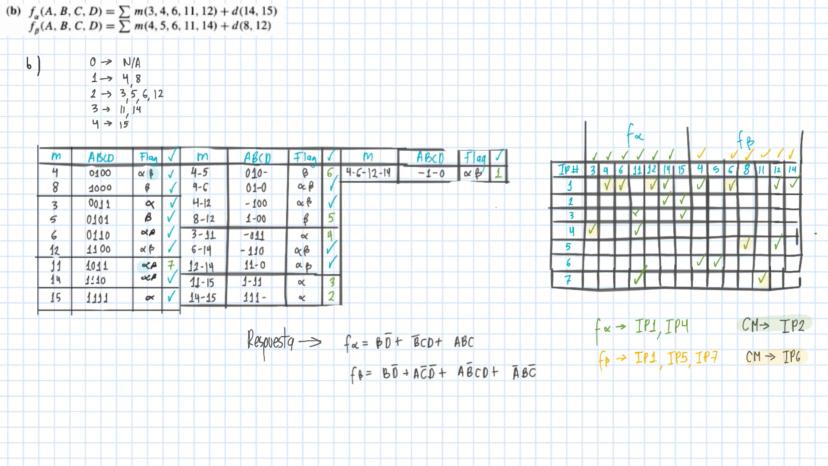 (b) fα(A, B, C, D) = ∑ m(3, 4, 6, 11, 12) + d(14, 15)
fβ(A, B, C, D) = ∑ m(4, 5, 6, 11, 14) + d(8, 12)
b)
0 → N/A
1 → 4, 8
2 → 3, 5, 6, 12
3 → 11, 14
4 → 15
m ABCD Flag ✓ m ABCD Flag ✓ m ABCD Flag ✓
4 0100 αβ ✓ 4-5 010- β 6 4-6-12-14 -1-0 αβ 1
8 1000 β ✓ 4-6 01-0 αβ ✓
3 0011 α ✓ 4-12 -100 αβ ✓
5 0101 β ✓ 8-12 1-00 β 5
6 0110 αβ ✓ 3-11 -011 α 4
12 1100 αβ ✓ 6-14 -110 αβ ✓
11 1011 αβ 7 12-14 11-0 αβ ✓
14 1110 αβ ✓ 11-15 1-11 α 3
15 1111 α ✓ 14-15 111- α 2
fα fβ
✓ ✓ ✓ ✓ ✓ ✓ ✓ ✓ ✓ ✓ ✓ ✓
IP# 3 4 6 11 12 14 15 4 5 6 8 11 12 14
1 ✓ ✓ ✓ ✓ ✓ ✓ ✓ ✓
2 ✓ ✓
3 ✓ ✓
4 ✓ ✓
5 ✓ ✓
6 ✓ ✓
7 ✓ ✓
fα → IP1, IP4 CM → IP2
fβ → IP1, IP5, IP7 CM → IP6
Respuesta → fα = BD̅ + B̅CD + ABC
fβ = BD̅ + AC̅D̅ + AB̅CD + A̅BC̅